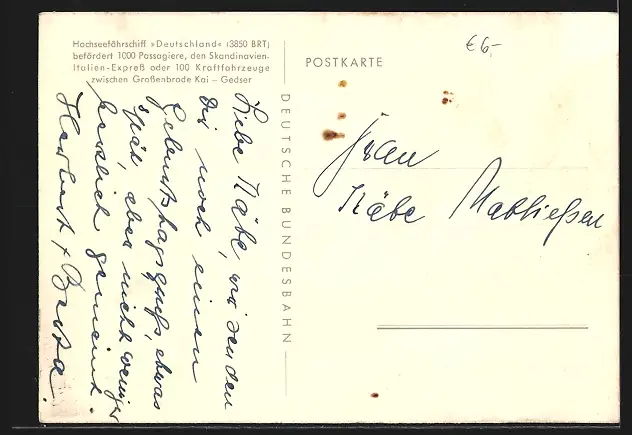 Hochseefährschiff »Deutschland« (3850 BRT)
befördert 1000 Passagiere, den Skandinavien-
Italien-Expreß oder 100 Kraftfahrzeuge
zwischen Großenbrode Kai – Gedser
Liebe Käte, wir senden
Dir noch einen
Geburtstagsgruß, etwas
spät, aber nicht weniger
herzlich gemeint.
Herbert + Berta.
DEUTSCHE BUNDESBAHN
POSTKARTE
€ 6,-
Frau
Käte Matthießen